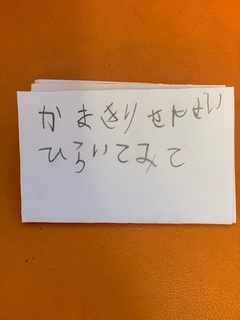 かまきりせんせい
ひらいてみて